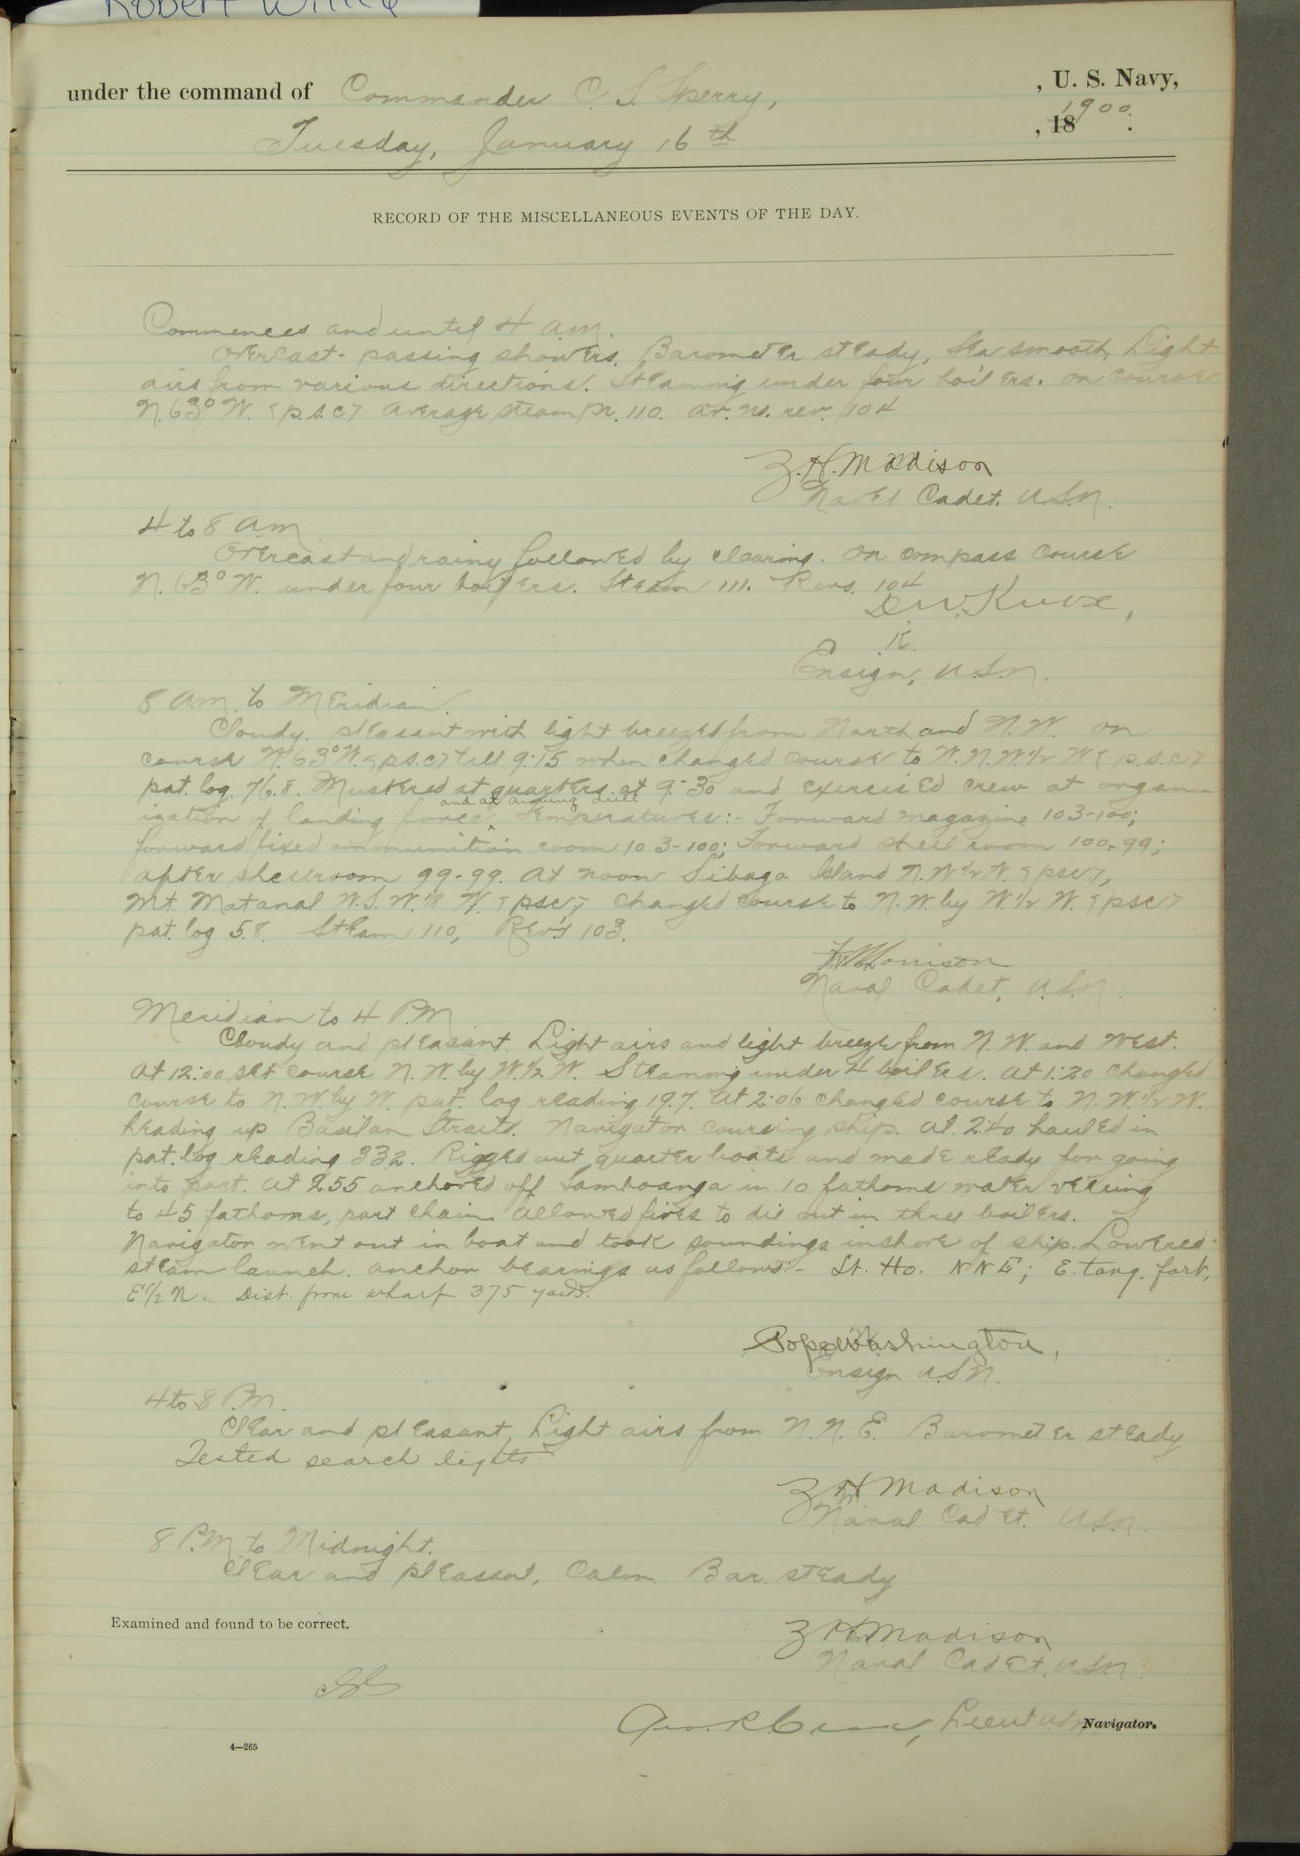 under the command of Commander C. S. Sperry, , U. S. Navy,
Tuesday, January 16th , 18 1900.
RECORD OF THE MISCELLANEOUS EVENTS OF THE DAY.
Commences and until 4 am.
Overcast - passing showers. Barometer steady, Sea smooth, Light
airs from various directions. Steaming under four boilers. on course
N.63° W. p.s.c. Average steam pr. 110. av. no. rev. 104
Z. H. Madison
Naval Cadet. U.S.N.
4 to 8 am
Overcast and rainy followed by clearing. On compass course
N.63° W. under four boilers. Steam 111. Revs. 104
D. W. Knox,
Ensign, U.S.N.
8 a.m. to Meridian.
Cloudy. pleasant with light breezes from North and N.W. on
course N.63°W. p.s.c. till 9:15 when changed course to W.N.W.1/2 W p.s.c.
pat. log. 76.8. Mustered at quarters at 9:30 and exercised crew at organ-
and at aiming drill
ization of landing force. Temperatures:- Forward magazine 103-100;
forward fixed ammunition room 103-100; Forward shell room 100-99;
after shellroom 99-99. At noon Sibago Island N.W1/2 W. psc,
Mt. Matanal W.S.W.1/8 W. psc, Changed course to N.W. by W1/2 W. psc
pat. log 5.8. Steam 110, Rev's 103.
Morrison
Naval Cadet, U.S.N.
Meridian to 4 P.M
Cloudy and pleasant. Light airs and light breeze from N.W. and West.
At 12:00 set course N.W. by W.1/2 W. Steaming under 4 boilers. At 1:20 changed
course to N.W. by W. pat. log reading 19.7. At 2:06 changed course to N.W.1/2 W.
heading up Basilan Straits. Navigator coursing ship. At 2:40 hauled in
pat. log reading 332. Rigged out quarter boats and made ready for going
into port. At 2:55 anchored off Samboanga in 10 fathoms water veering
to 45 fathoms, port chain. Allowed fires to die out in three boilers.
Navigator went out in boat and took soundings inshore of ship. Lowered
steam launch. anchor bearings as follows:- Lt. Ho. NNE; E. tang. fort,
E1/2 N. Dist. from wharf 375 yards.
Pope Washington,
Ensign U.S.N.
4 to 8 P.M.
Clear and pleasant, Light airs from N.N.E. Barometer steady
Tested search lights
Z H Madison
Naval Cadet. U.S.N.
8 P.M. to Midnight.
Clear and pleasant, Calm Bar. steady
Examined and found to be correct.
Z H Madison
Naval Cadet, U.S.N.
Lieut U.S.N. Navigator.
4—265